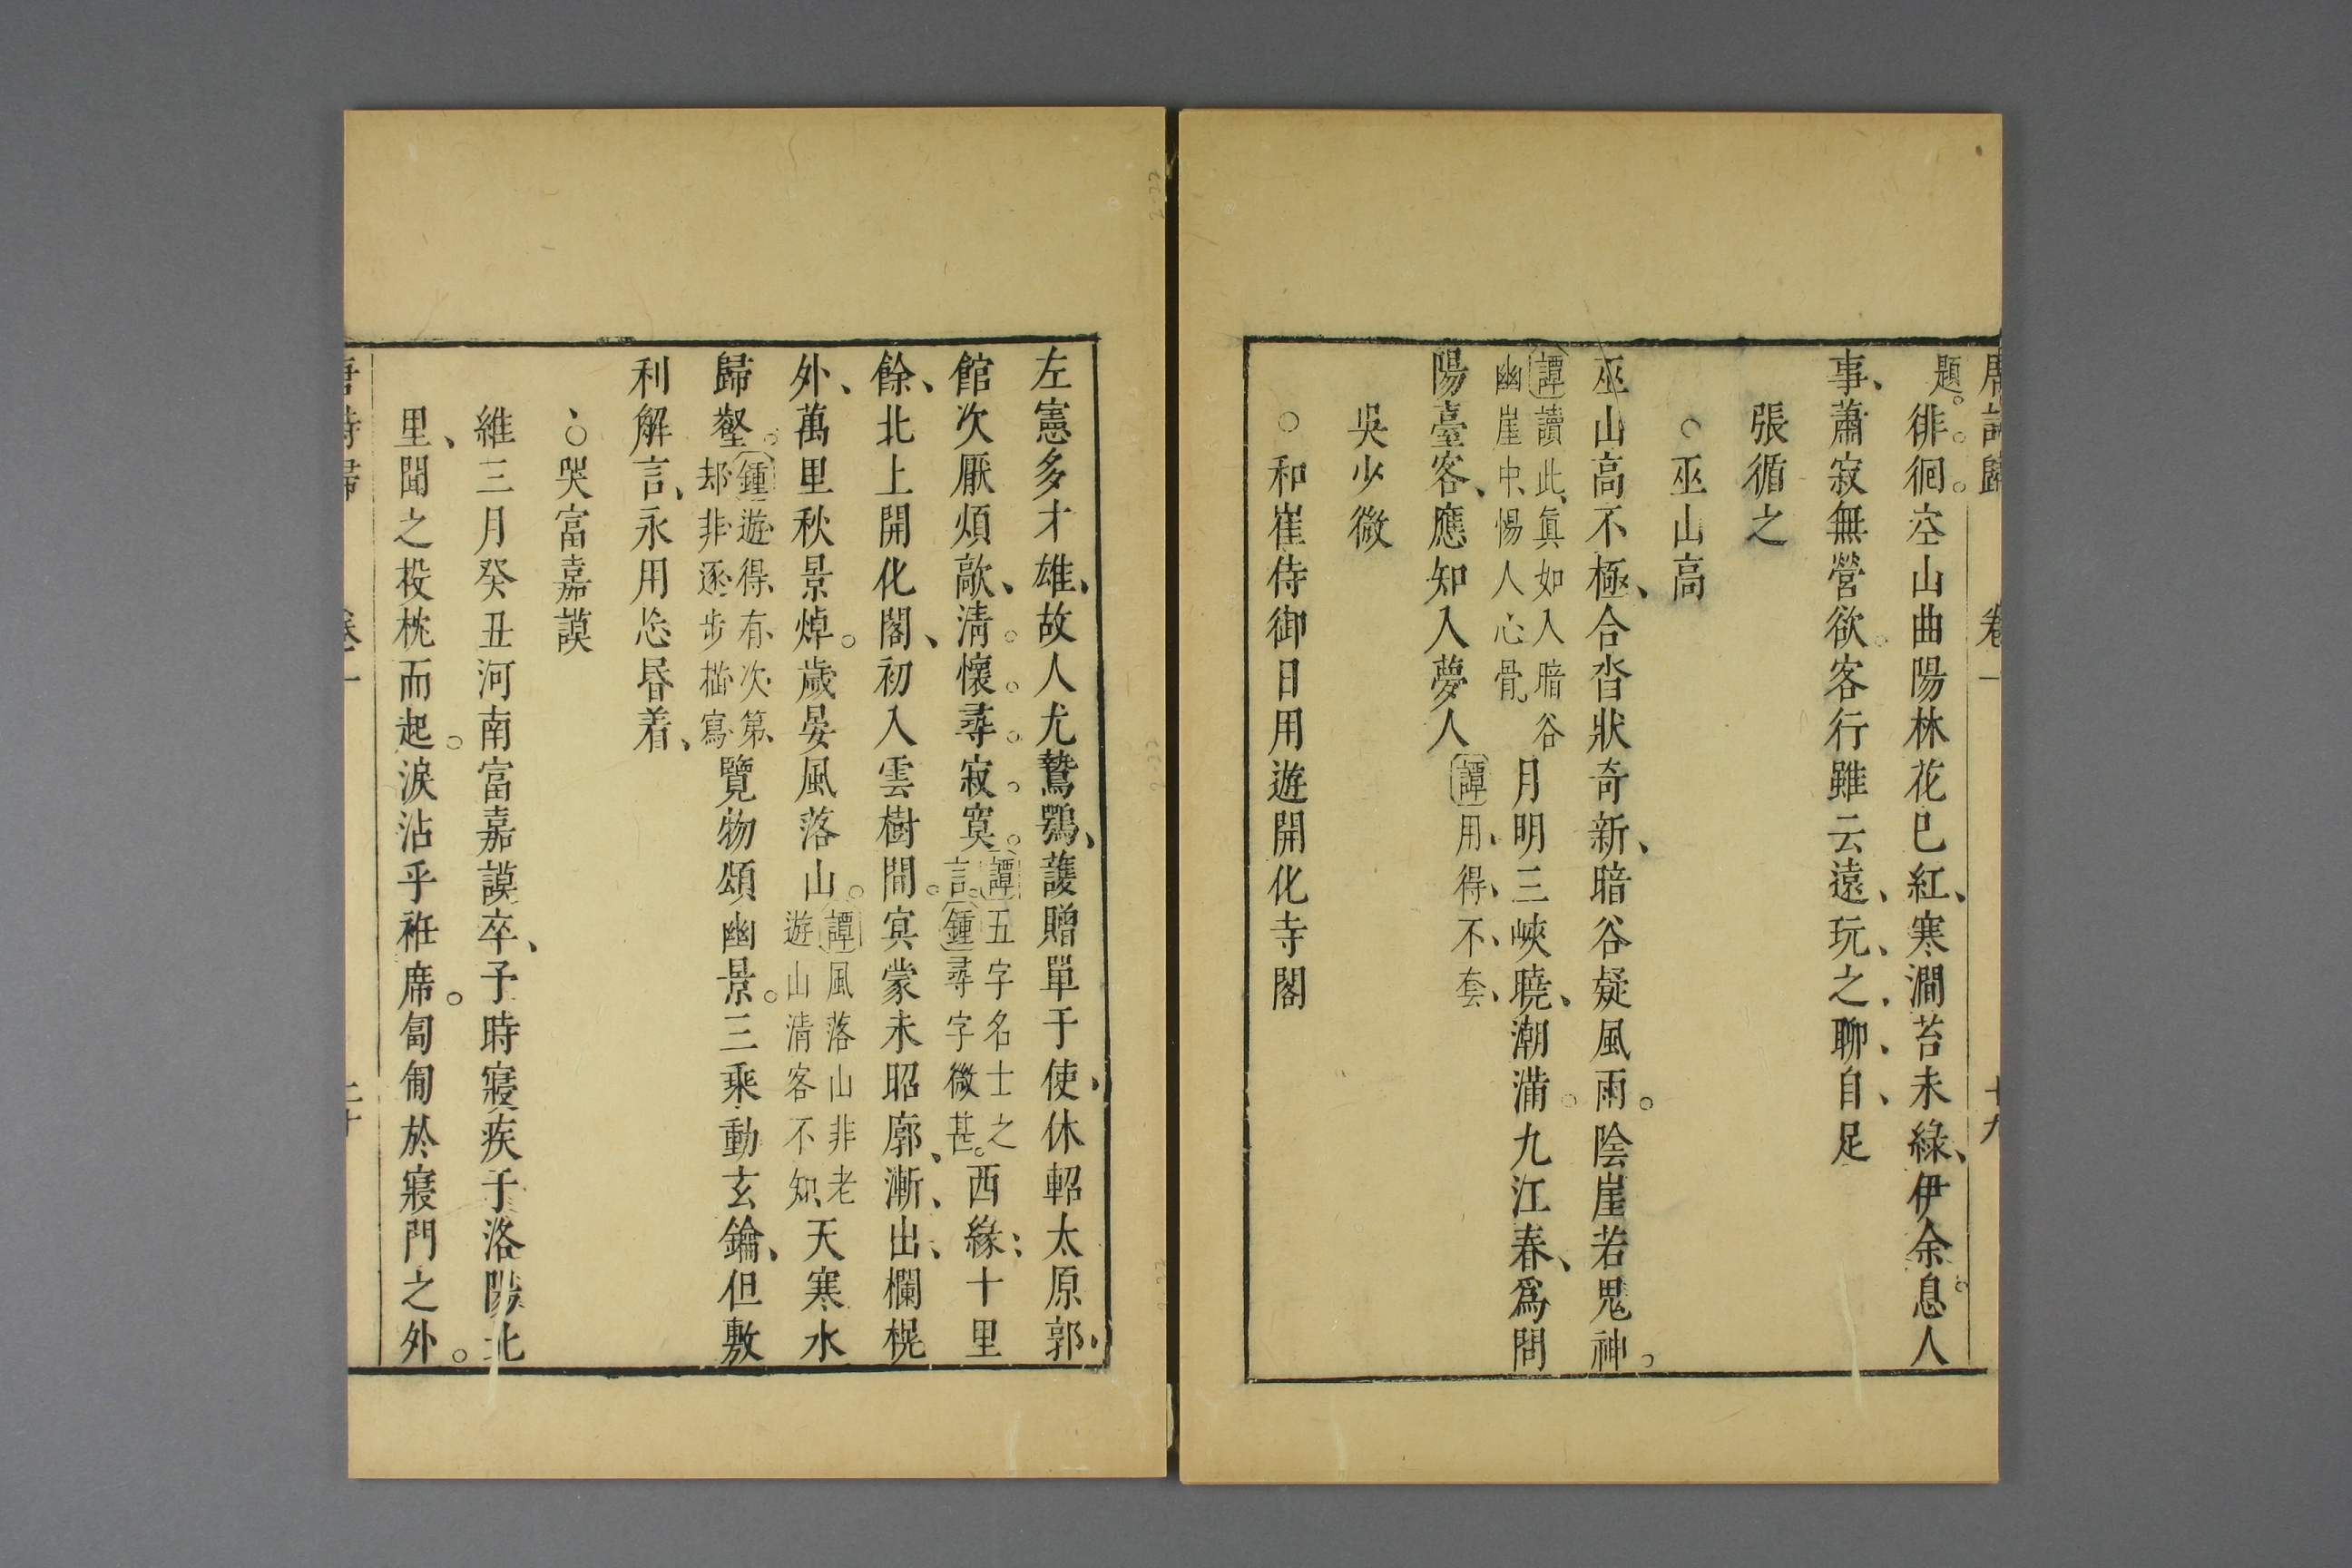 唐詩歸 卷一 十九
題徘徊空山曲陽林花巳紅寒澗苔未綠伊余息人
事蕭寂無營欲客行雖云遠玩之聊自足
張循之
○巫山高
巫山高不極合沓狀奇新暗谷疑風雨陰崖若鬼神
譚讀此眞如入暗谷
幽崖中惕人心骨
月明三峽曉潮滿九江春爲問
陽臺客應知入夢人
譚用得不套
吳少微
○和崔侍御日用遊開化寺閣
左憲多才雄故人尤鷙鶚護贈單于使休軺太原郭
館次厭煩歊淸懷尋寂寞
譚五字名士之
言鍾尋字微甚
西緣十里
餘北上開化閣初入雲樹間㝠蒙未昭廓漸出欄榥
外萬里秋景焯歲晏風落山
譚風落山非老
遊山淸客不知
天寒水
歸壑
鍾遊得有次第
却非逐步描寫
覽物頌幽景三乘動玄鑰但敷
利解言永用忩昏着
、○哭富嘉謨
維三月癸丑河南富嘉謨卒予時寢疾于洛陽北
里聞之投枕而起淚沾乎袵席匍匐於寢門之外
唐詩歸 卷一 二十